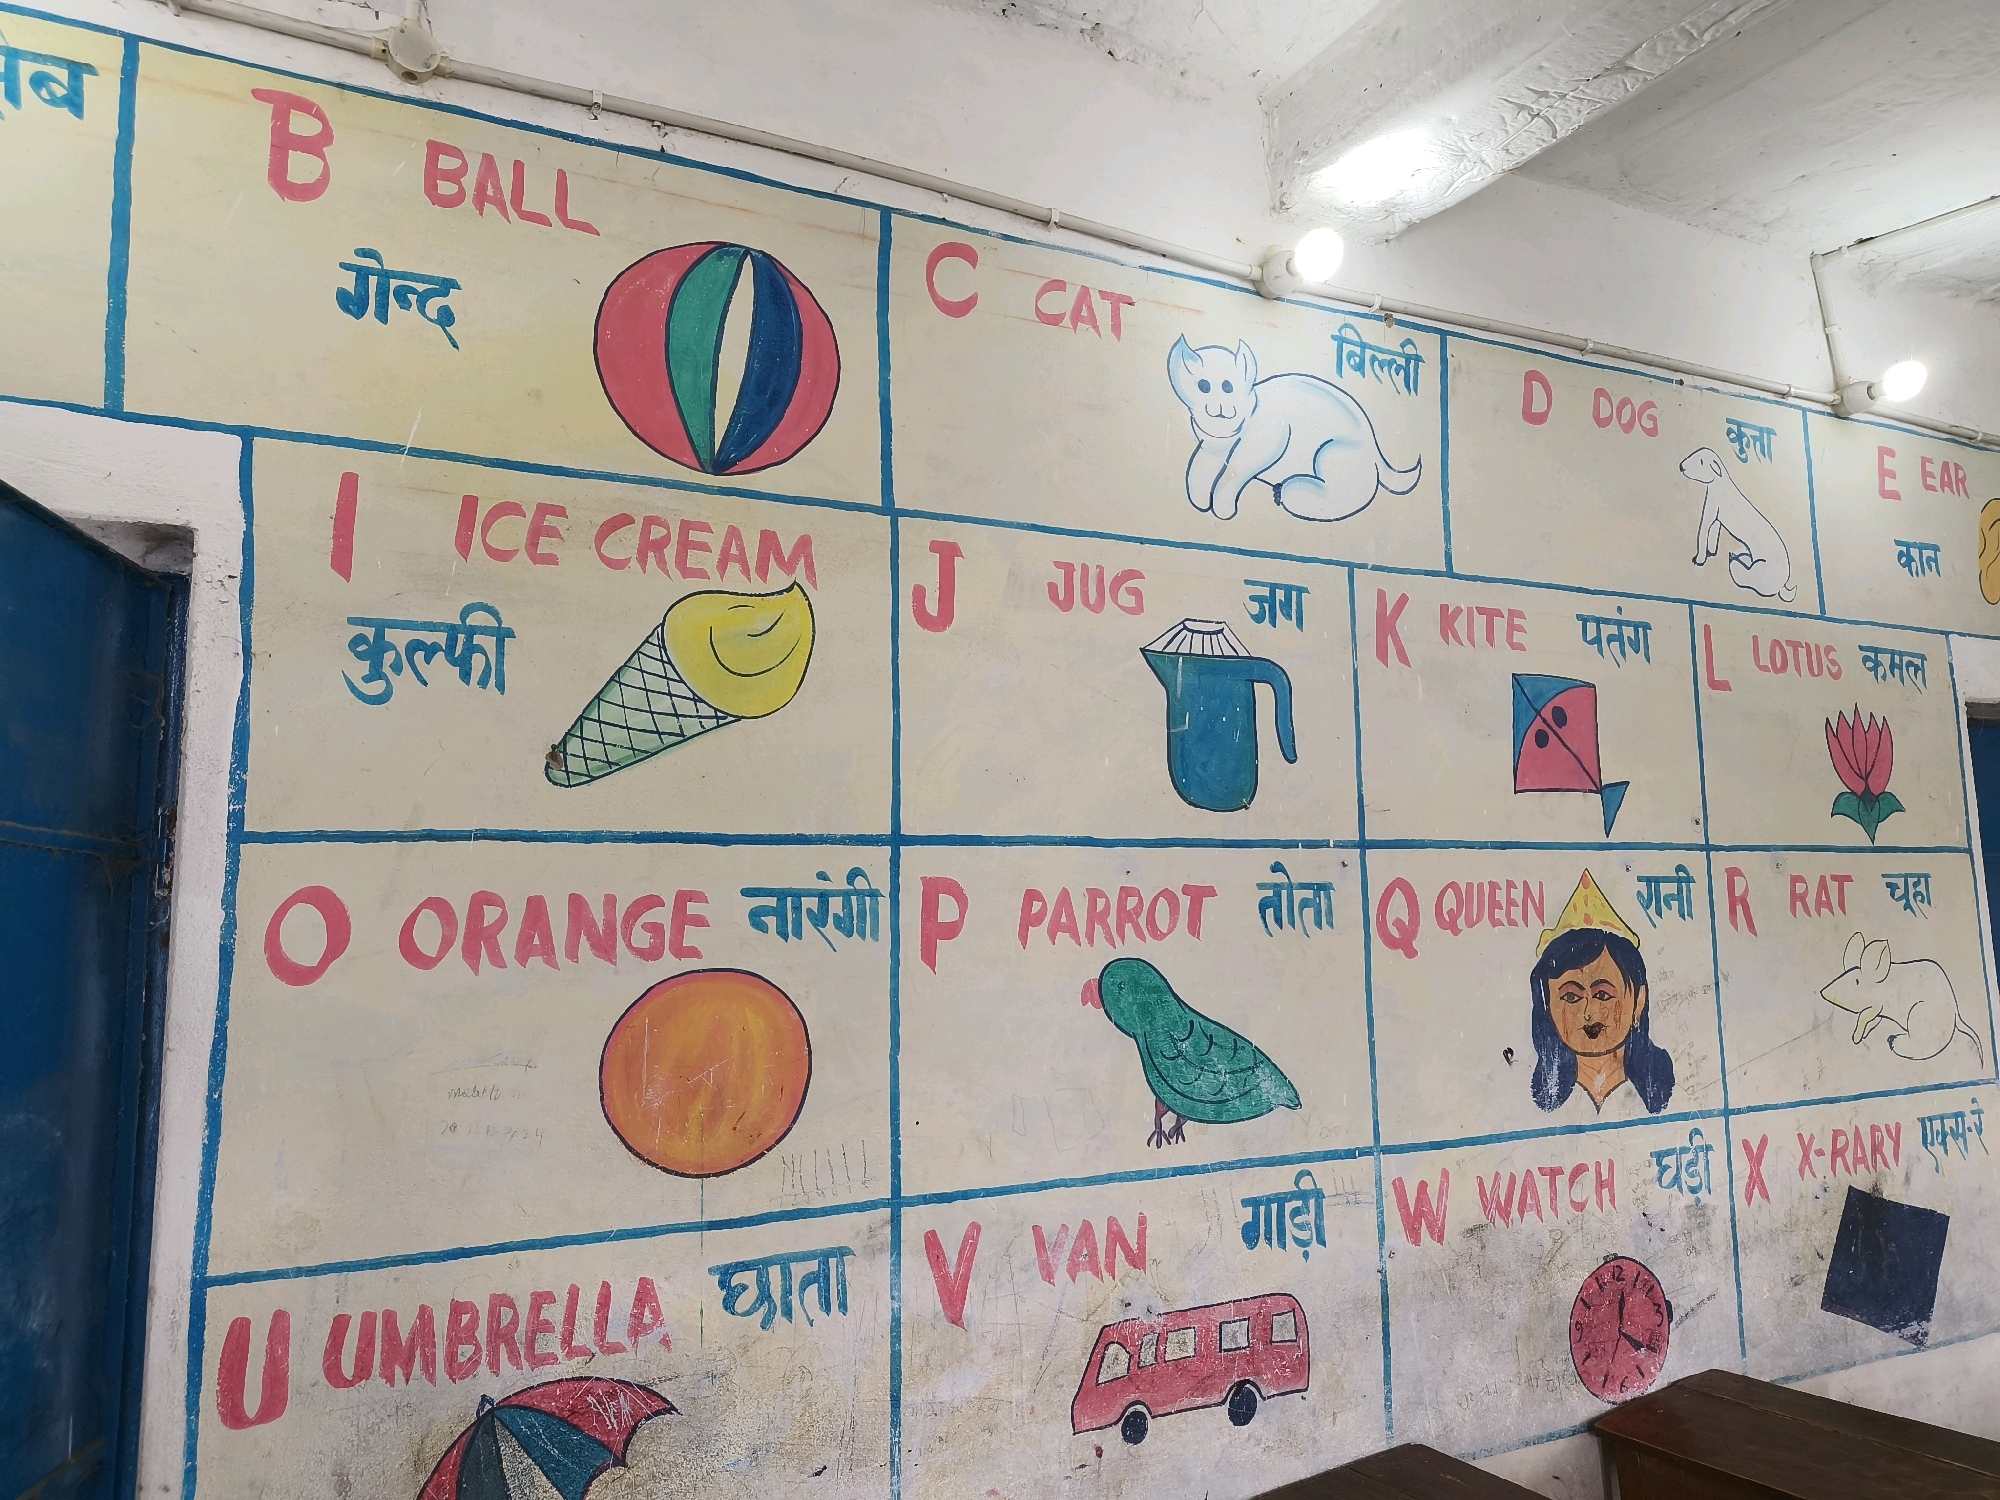 सेब
B BALL
गेन्द
C CAT बिल्ली
D DOG कुत्ता
E EAR
कान
I ICE CREAM
कुल्फी
J JUG जग
K KITE पतंग
L LOTUS कमल
O ORANGE नारंगी
P PARROT तोता
Q QUEEN रानी
R RAT चूहा
U UMBRELLA छाता
V VAN गाड़ी
W WATCH घड़ी
X X-RARY एक्स-रे